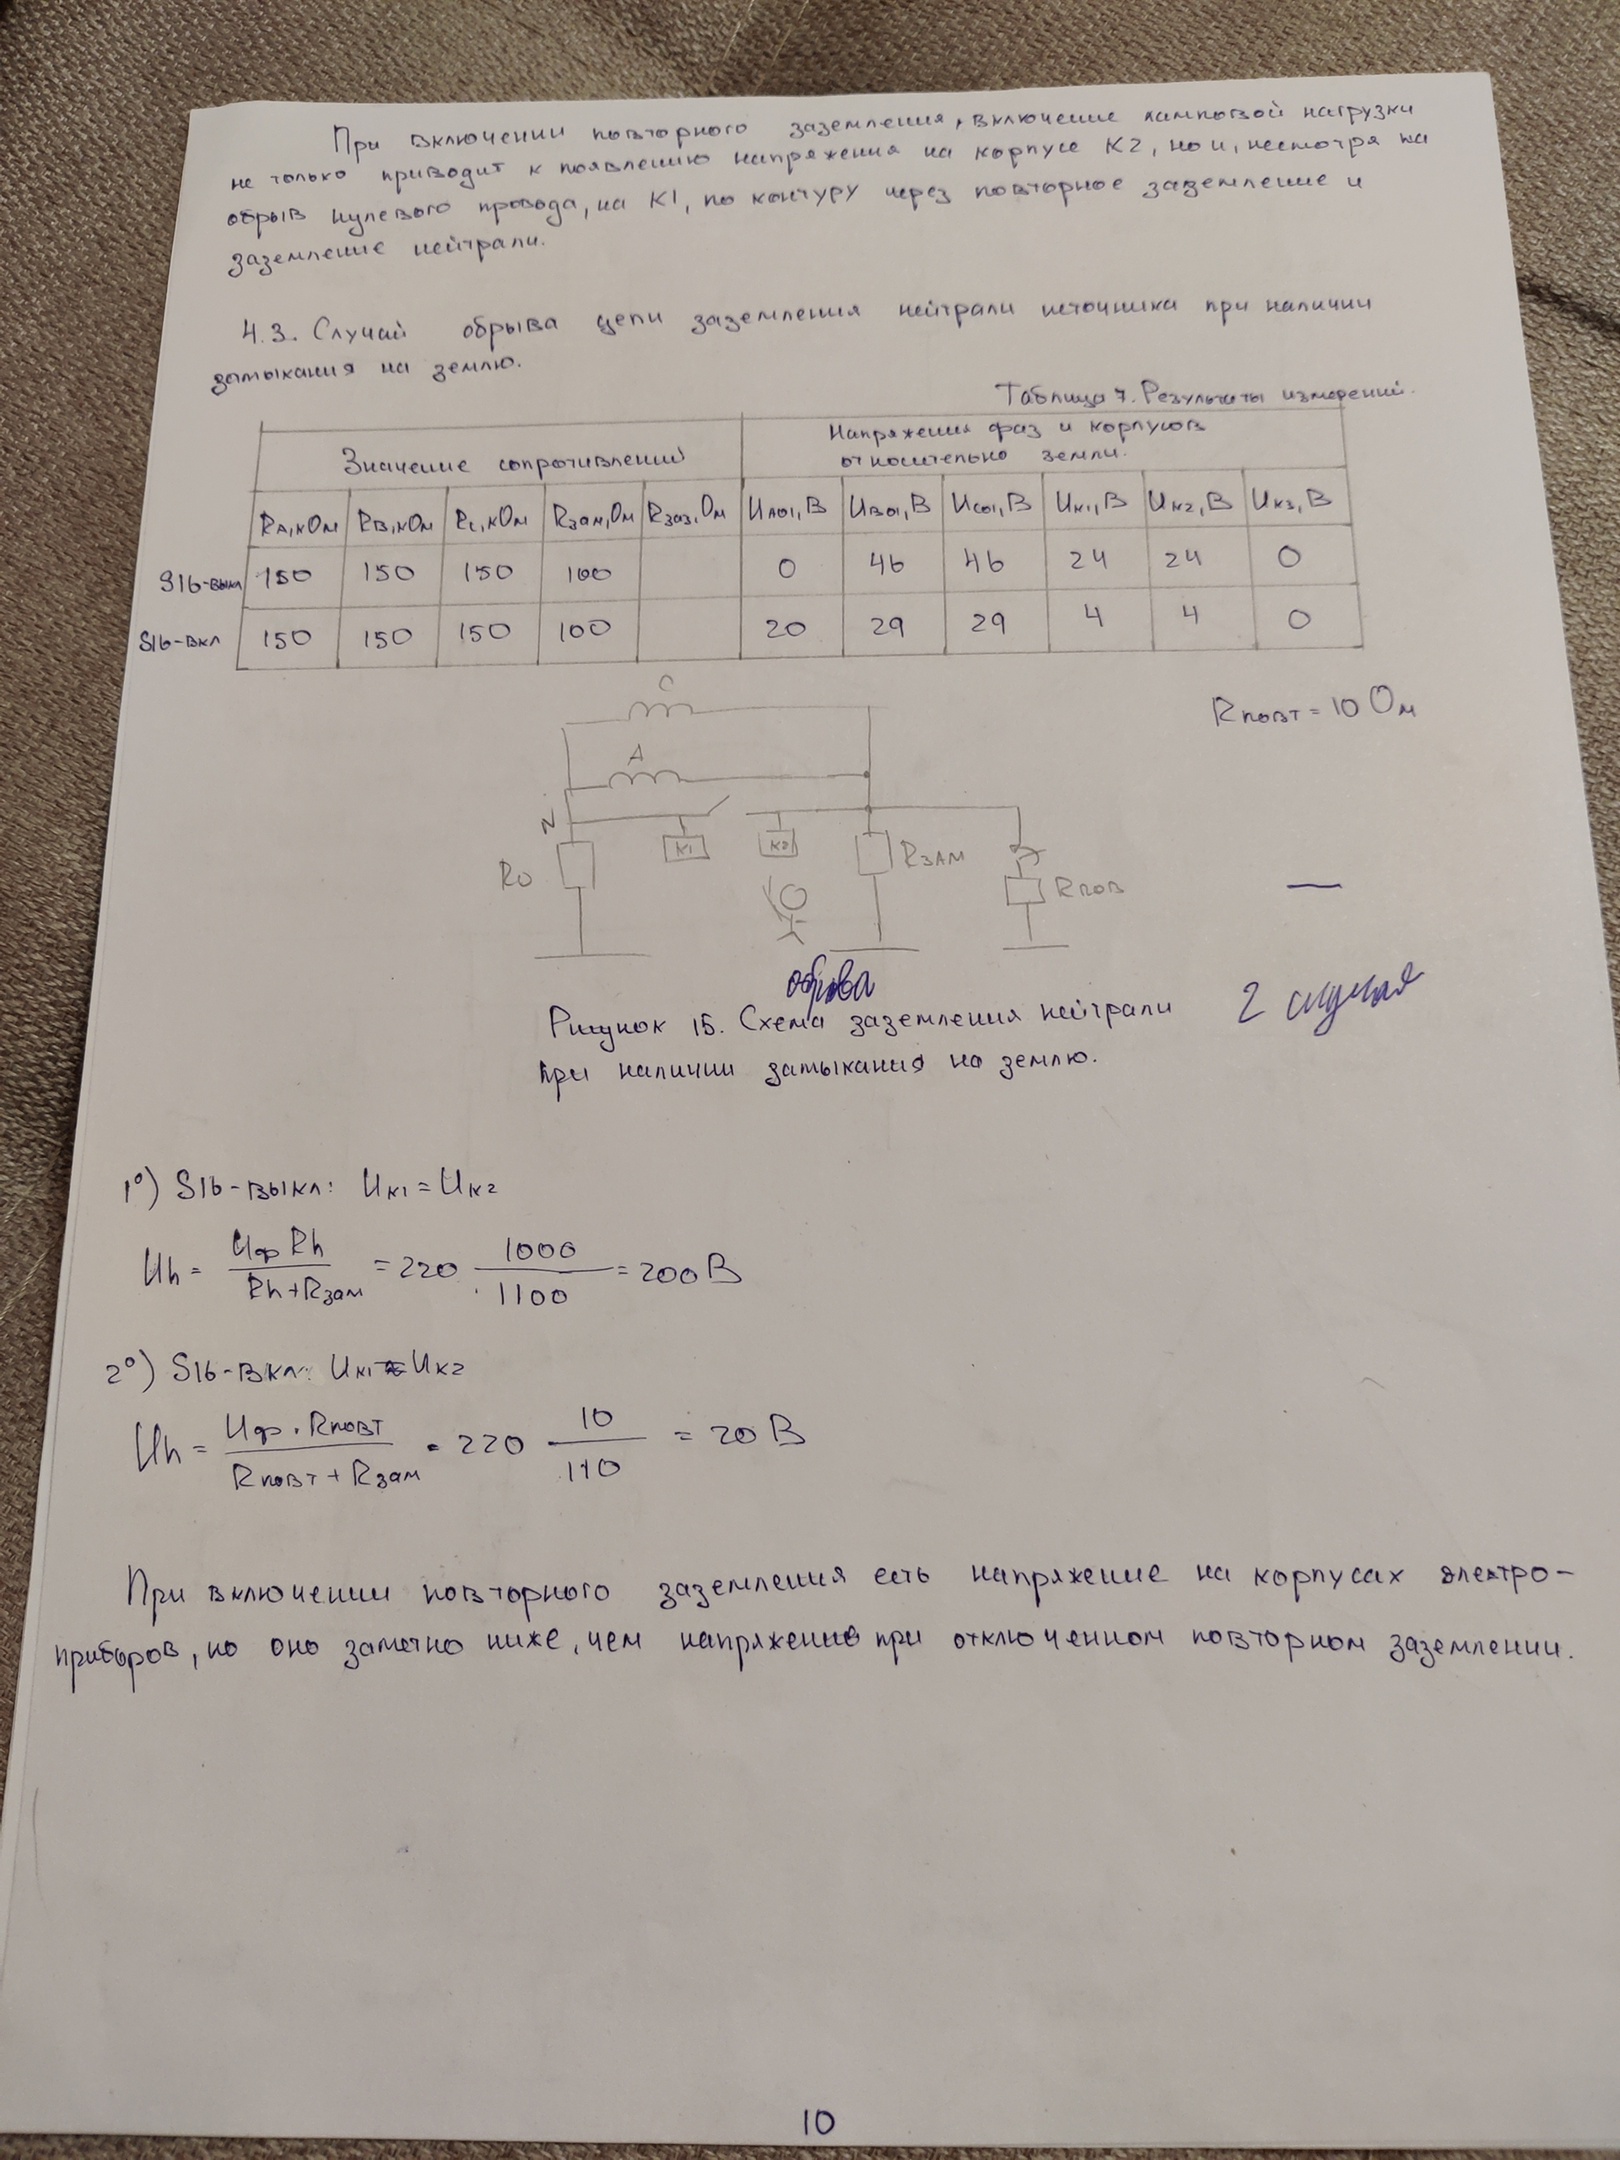 При включении повторного заземления, включение ламповой нагрузки
не только приводит к появлению напряжения на корпусе К2, но и, несмотря на
обрыв нулевого провода, на К1, по контуру через повторное заземление и
заземление нейтрали.
4.3. Случай обрыва цепи заземления нейтрали источника при наличии
замыкания на землю.
Таблица 7. Результаты измерений.
Значение сопротивлений Напряжения фаз и корпусов
относительно земли.
RA,кОм RB,кОм RC,кОм Rзам,Ом Rзаз,Ом UA01,В UB01,В UC01,В Uк1,В Uк2,В Uк3,В
S16-выкл 150 150 150 100 0 46 46 24 24 0
S16-вкл 150 150 150 100 20 29 29 4 4 0
Rповт = 10 Ом
C
A
N
К1 К2
R0 RЗАМ RПОВ
обрыва
Рисунок 15. Схема заземления нейтрали
2 случая
при наличии замыкания на землю.
1°) S16-выкл: Uк1 = Uк2
Uh = Uф Rh / Rh + Rзам = 220 · 1000 / 1100 = 200 В
2°) S16-вкл: Uк1 = Uк2
Uh = Uф · Rповт / Rповт + Rзам = 220 10 / 110 = 20 В
При включении повторного заземления есть напряжение на корпусах электро-
приборов, но оно заметно ниже, чем напряжение при отключенном повторном заземлении.
10